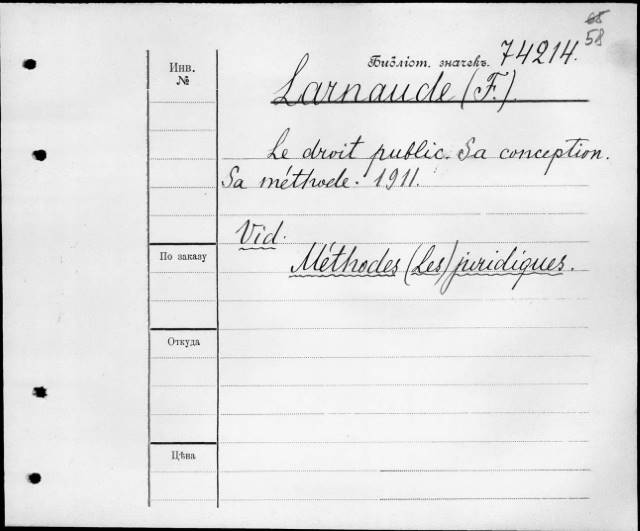 65
58
Библіот. значекъ 74214.
Инв.
№
Larnaude (F.).
Le droit public. Sa conception.
Sa méthode. 1911.
Vid.
Méthodes (Les) juridiques.
По заказу
Откуда
Цѣна